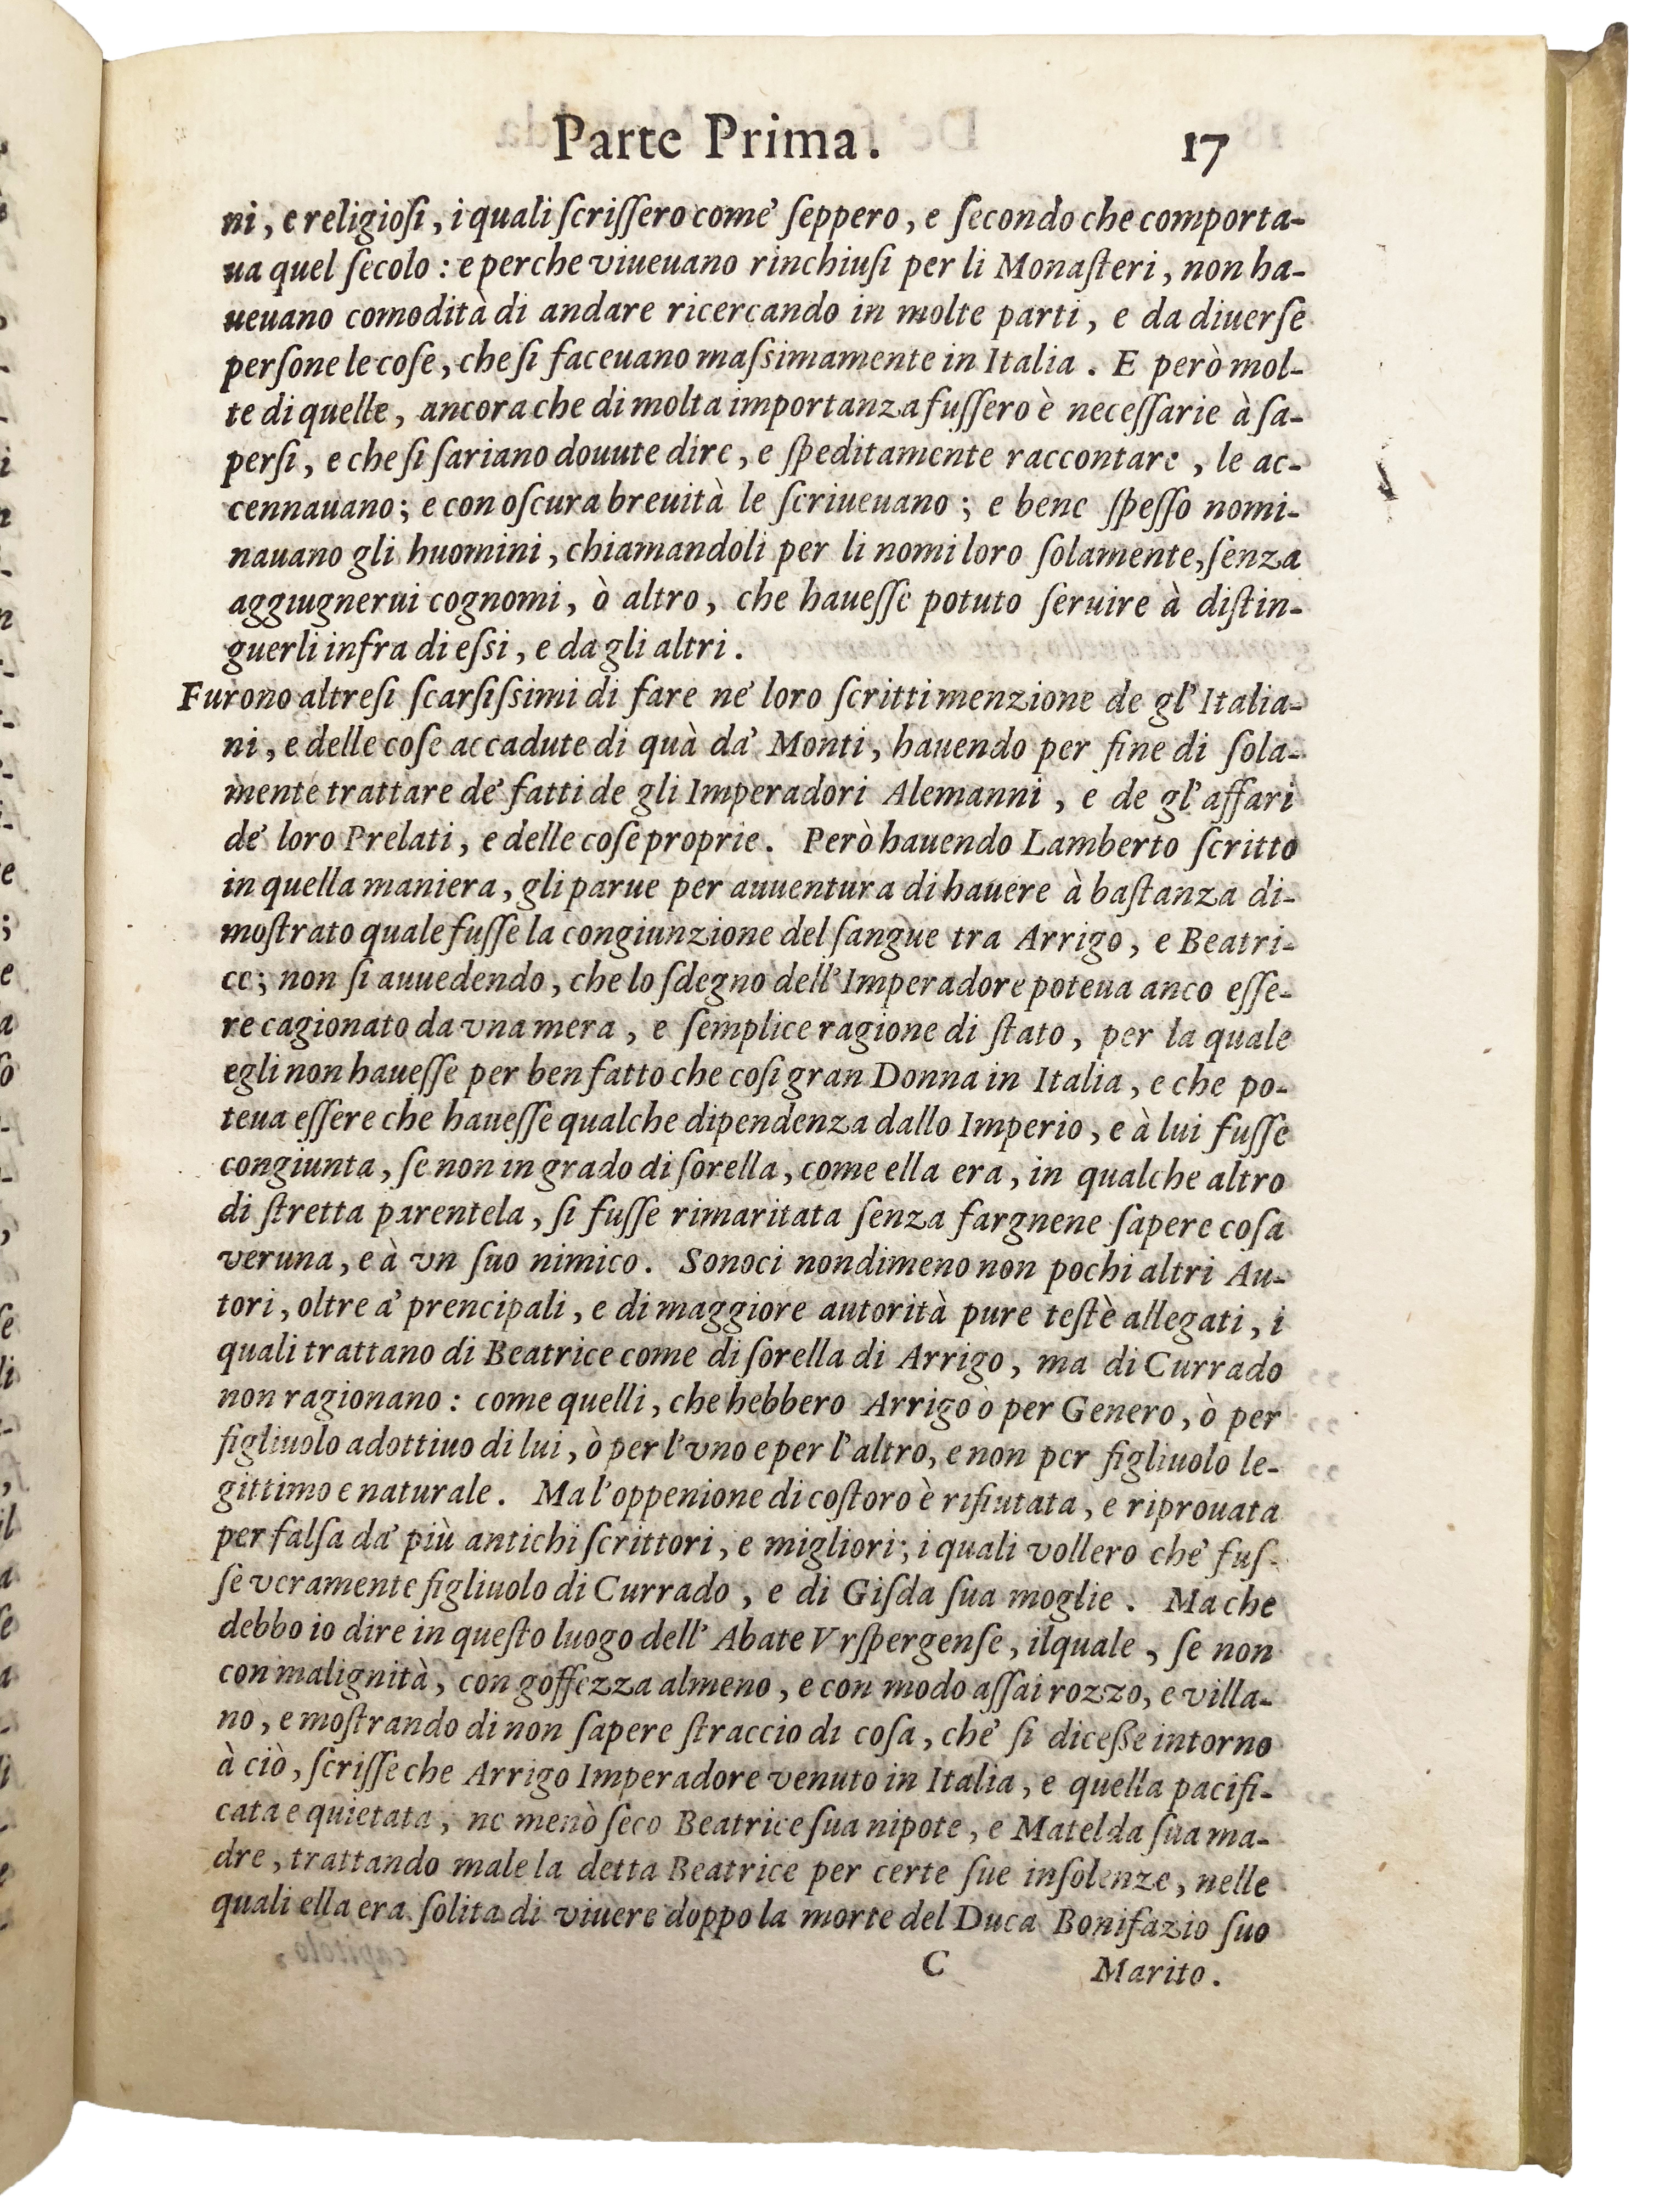 Parte Prima. 17
ni, e religioſi, i quali ſcriſſero come' ſeppero, e ſecondo che comporta-
ua quel ſecolo : e perche viueuano rinchiuſi per li Monaſteri, non ha-
ueuano comodità di andare ricercando in molte parti, e da diuerſe
perſone le coſe, che ſi faceuano maſsimamente in Italia. E però mol-
te di quelle, ancora che di molta importanza fuſſero è neceſſarie à ſa-
perſi, e che ſi ſariano douute dire, e ſpeditamente raccontare, le ac-
cennauano; e con oſcura breuità le ſcriueuano; e bene ſpeſſo nomi-
nauano gli huomini, chiamandoli per li nomi loro ſolamente, ſenza
aggiugnerui cognomi, ò altro, che haueſſe potuto ſeruire à diſtin-
guerli infra di eſsi, e da gli altri.
Furono altreſi ſcarſiſsimi di fare ne' loro ſcritti menzione de gl' Italia-
ni, e delle coſe accadute di quà da' Monti, hauendo per fine di ſola-
mente trattare de' fatti de gli Imperadori Alemanni, e de gl' affari
de' loro Prelati, e delle coſe proprie. Però hauendo Lamberto ſcritto
in quella maniera, gli parue per auuentura di hauere à baſtanza di-
moſtrato quale fuſſe la congiunzione del ſangue tra Arrigo, e Beatri-
ce; non ſi auuedendo, che lo ſdegno dell' Imperadore poteua anco eſſe-
re cagionato da vna mera, e ſemplice ragione di ſtato, per la quale
egli non haueſſe per ben fatto che coſi gran Donna in Italia, e che po-
teua eſſere che haueſſe qualche dipendenza dallo Imperio, e à lui fuſſe
congiunta, ſe non in grado di ſorella, come ella era, in qualche altro
di ſtretta parentela, ſi fuſſe rimaritata ſenza fargnene ſapere coſa
veruna, e à vn ſuo nimico. Sonoci nondimeno non pochi altri Au-
tori, oltre a' prencipali, e di maggiore autorità pure teſtè allegati, i
quali trattano di Beatrice come di ſorella di Arrigo, ma di Currado
non ragionano : come quelli, che hebbero Arrigo ò per Genero, ò per
figliuolo adottiuo di lui, ò per l'vno e per l'altro, e non per figliuolo le-
gittimo e naturale. Ma l'oppenione di coſtoro è rifiutata, e riprouata
per falſa da' più antichi ſcrittori, e migliori; i quali vollero che' fuſ-
ſe veramente figliuolo di Currado, e di Giſda ſua moglie. Ma che
debbo io dire in queſto luogo dell' Abate Vrſpergenſe, ilquale, ſe non
con malignità, con goffezza almeno, e con modo aſſai rozzo, e villa-
no, e moſtrando di non ſapere ſtraccio di coſa, che' ſi diceße intorno
à ciò, ſcriſſe che Arrigo Imperadore venuto in Italia, e quella pacifi-
cata e quietata, ne menò ſeco Beatrice ſua nipote, e Matelda ſua ma-
dre, trattando male la detta Beatrice per certe ſue inſolenze, nelle
quali ella era ſolita di viuere doppo la morte del Duca Bonifazio ſuo
C Marito.